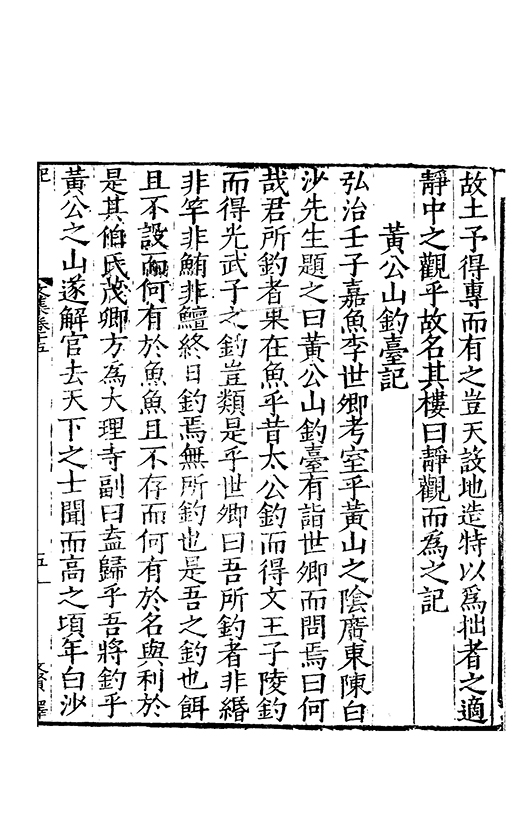 故土予得專而有之豈天設地造特以爲拙者之適
靜中之觀乎故名其樓曰靜觀而爲之記
黃公山釣臺記
弘治壬子嘉魚李世卿考室乎黃山之陰廣東陳白
沙先生題之曰黃公山釣臺有詣世卿而問焉曰何
哉君所釣者果在魚乎昔太公釣而得文王子陵釣
而得光武子之釣豈類是乎世卿曰吾所釣者非緡
非竿非鮪非鱣終日釣焉無所釣也是吾之釣也餌
且不設而何有於魚魚且不存而何有於名與利於
是其伯氏茂卿方爲大理寺副曰盍歸乎吾將釣乎
黃公之山遂解官去天下之士聞而高之項年白沙
記
文集卷十五
五